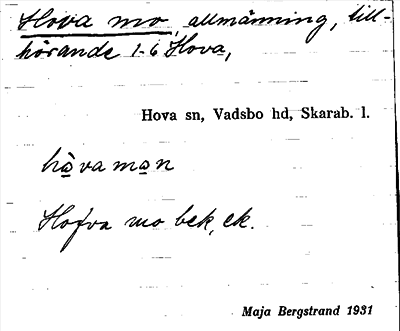 Hova mo, allmänning, till-
hörande 1-6 Hova,
Hova sn, Vadsbo hd, Skarab. l.
hå̀va mo̲n
Hofva mo bek, ek.
Maja Bergstrand 1931